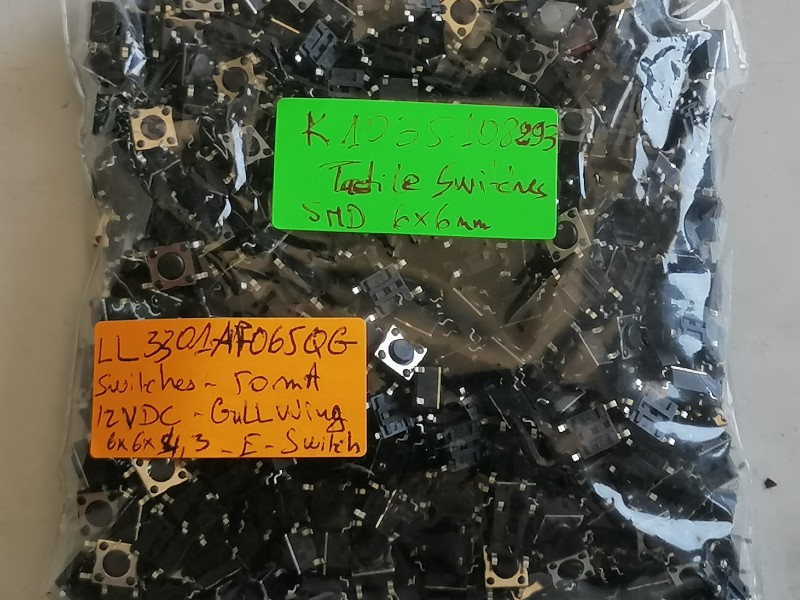 K1035108293
Tactile Switches
SMD 6x6mm
LL3301AF065QG
Switches - 50mA
12VDC - GullWing
6x6x4,3 - E-Switch